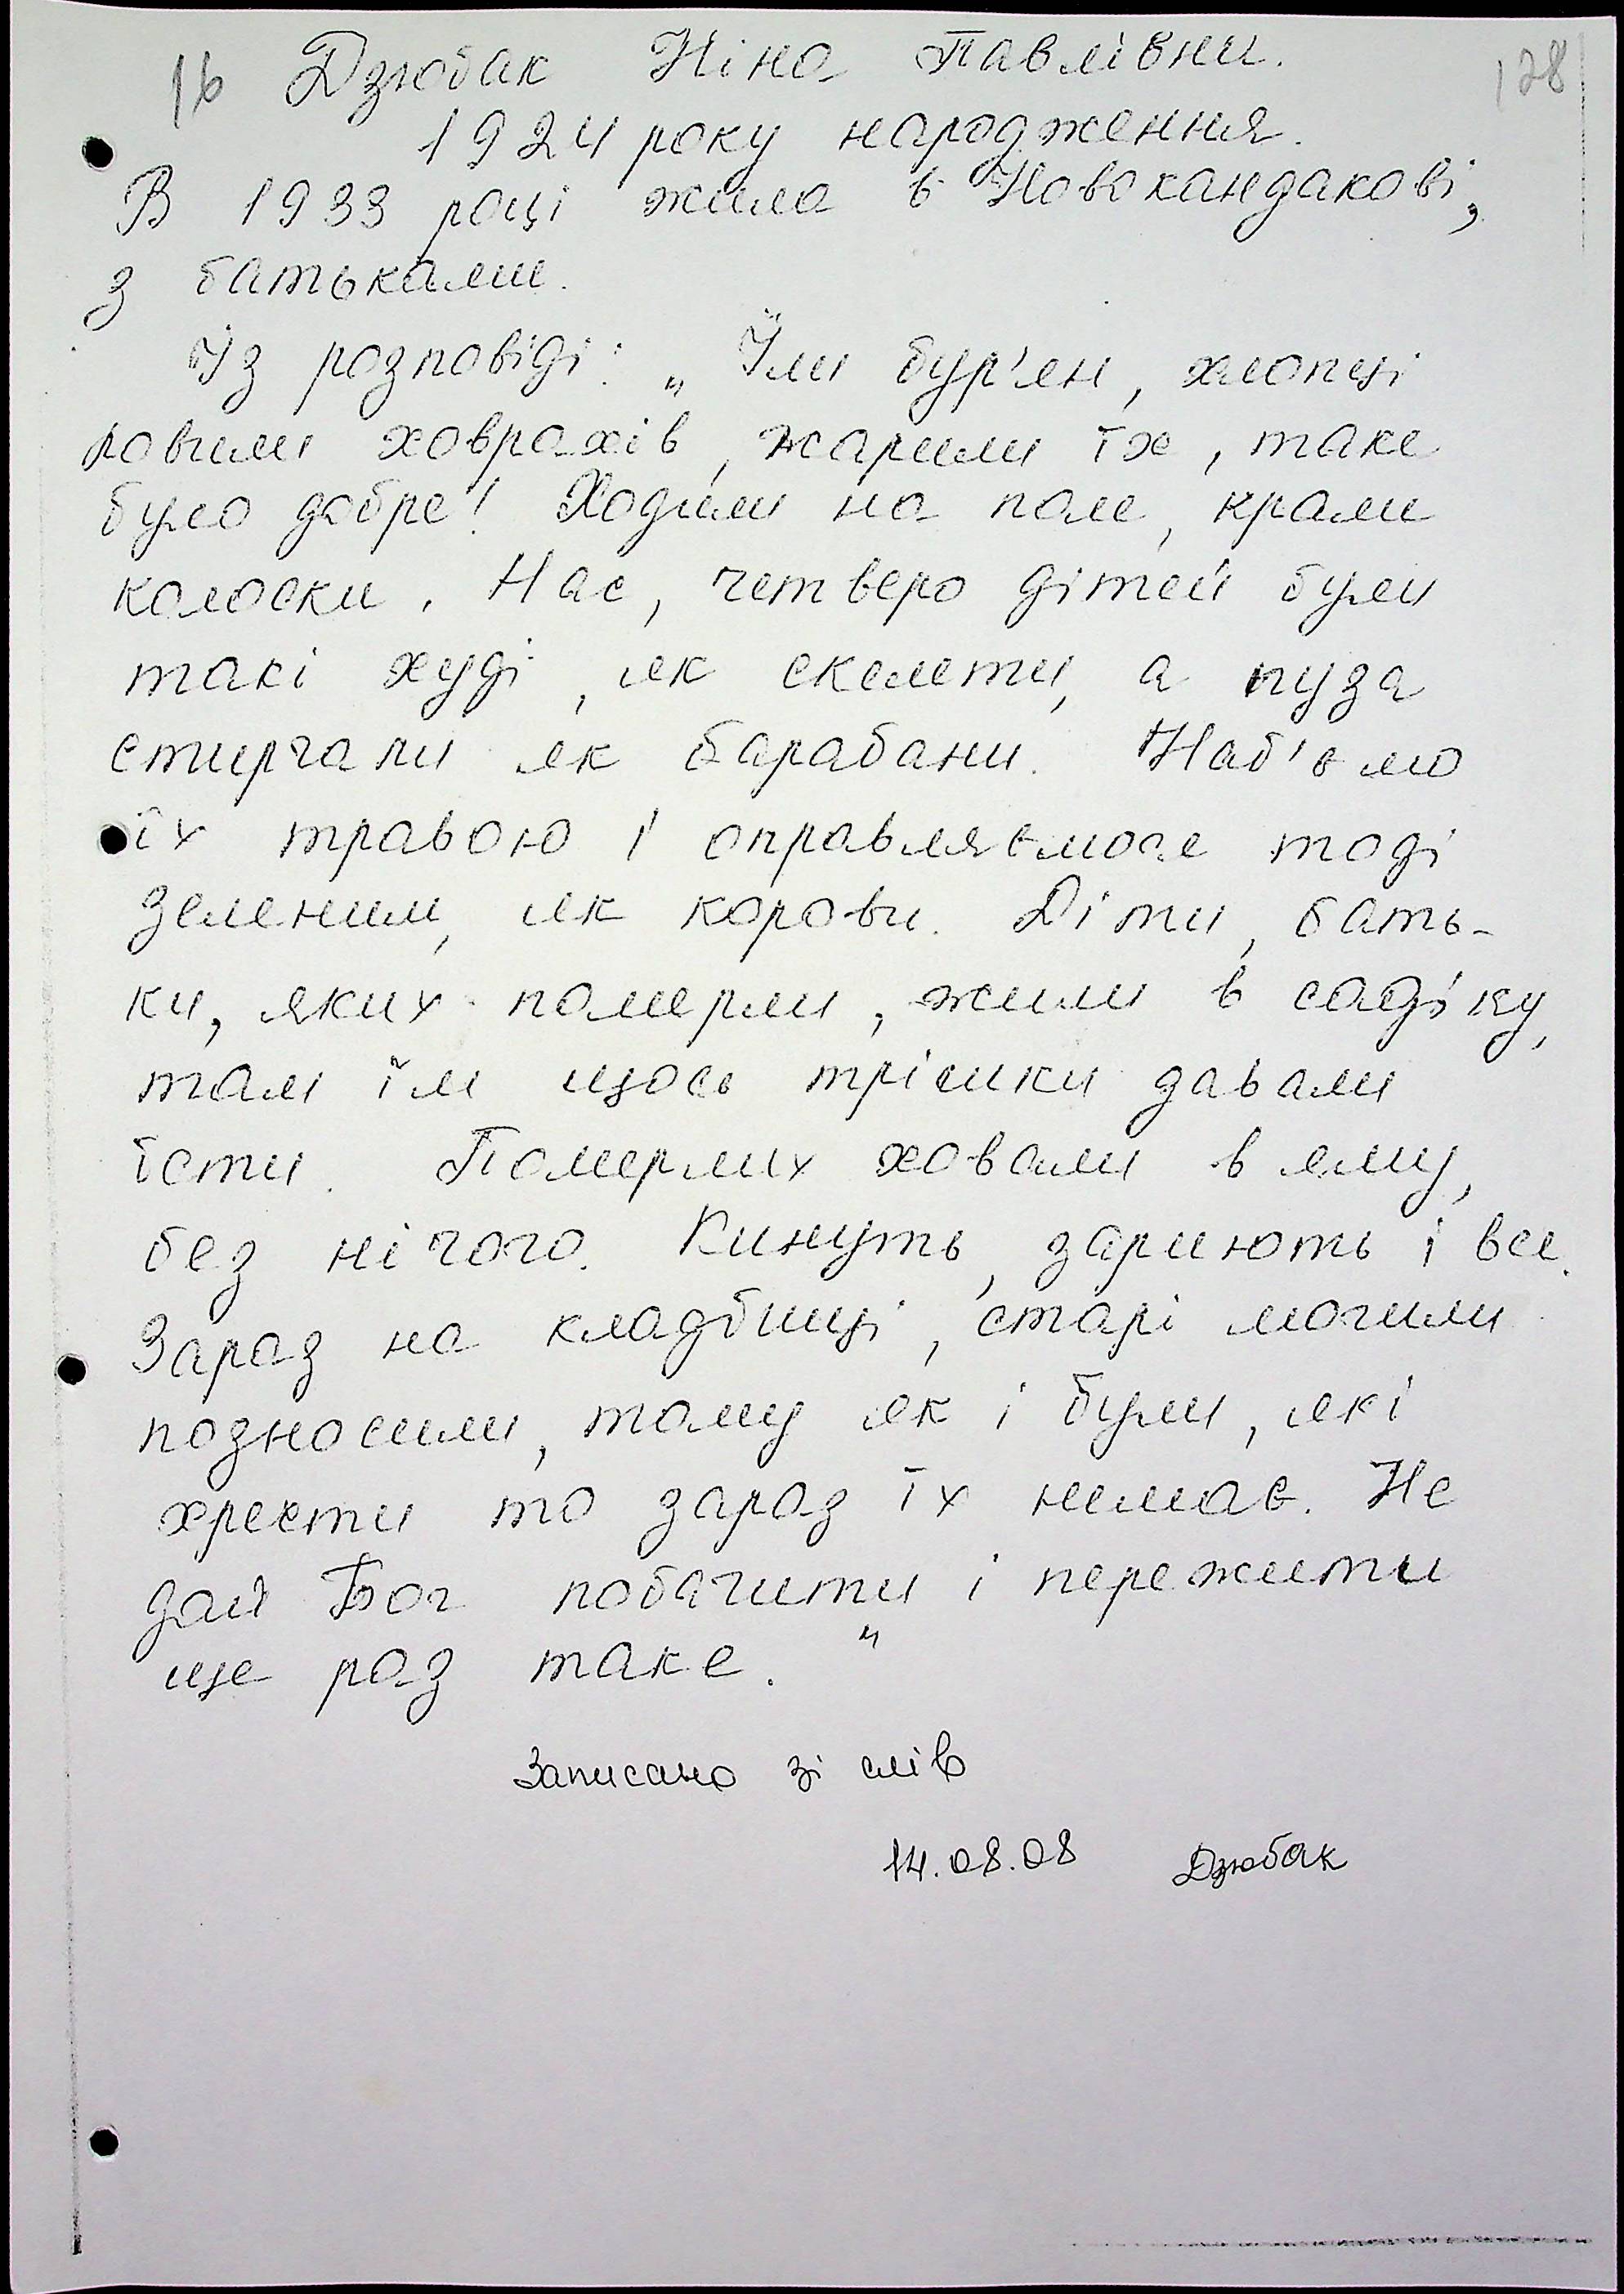 16 Дзюбак Ніна Павлівни. 128
1924 року народження.
В 1933 році жила в Новокандакові,
з батьками.
Із розповіді: „Їли бур'ян, хлопці
ловили ховрахів, жарили їх, таке
було добре! Ходили на поле, крали
колоски. Нас, четверо дітей були
такі худі, як скелети, а пуза
стирчали як барабани. Наб'ємо
їх травою і оправляємося тоді
зеленим, як корови. Діти, бать-
ки, яких померли, жили в садіку,
там їм щось трішки давали
їсти. Померлих ховали в яму,
без нічого. Кинуть, зариють і все.
Зараз на кладбищі, старі могили
позносили, тому як і були, які
хрести то зараз їх немає. Не
дай Бог побачити і пережити
ще раз таке."
Записано зі слів
14.08.08 Дзюбак